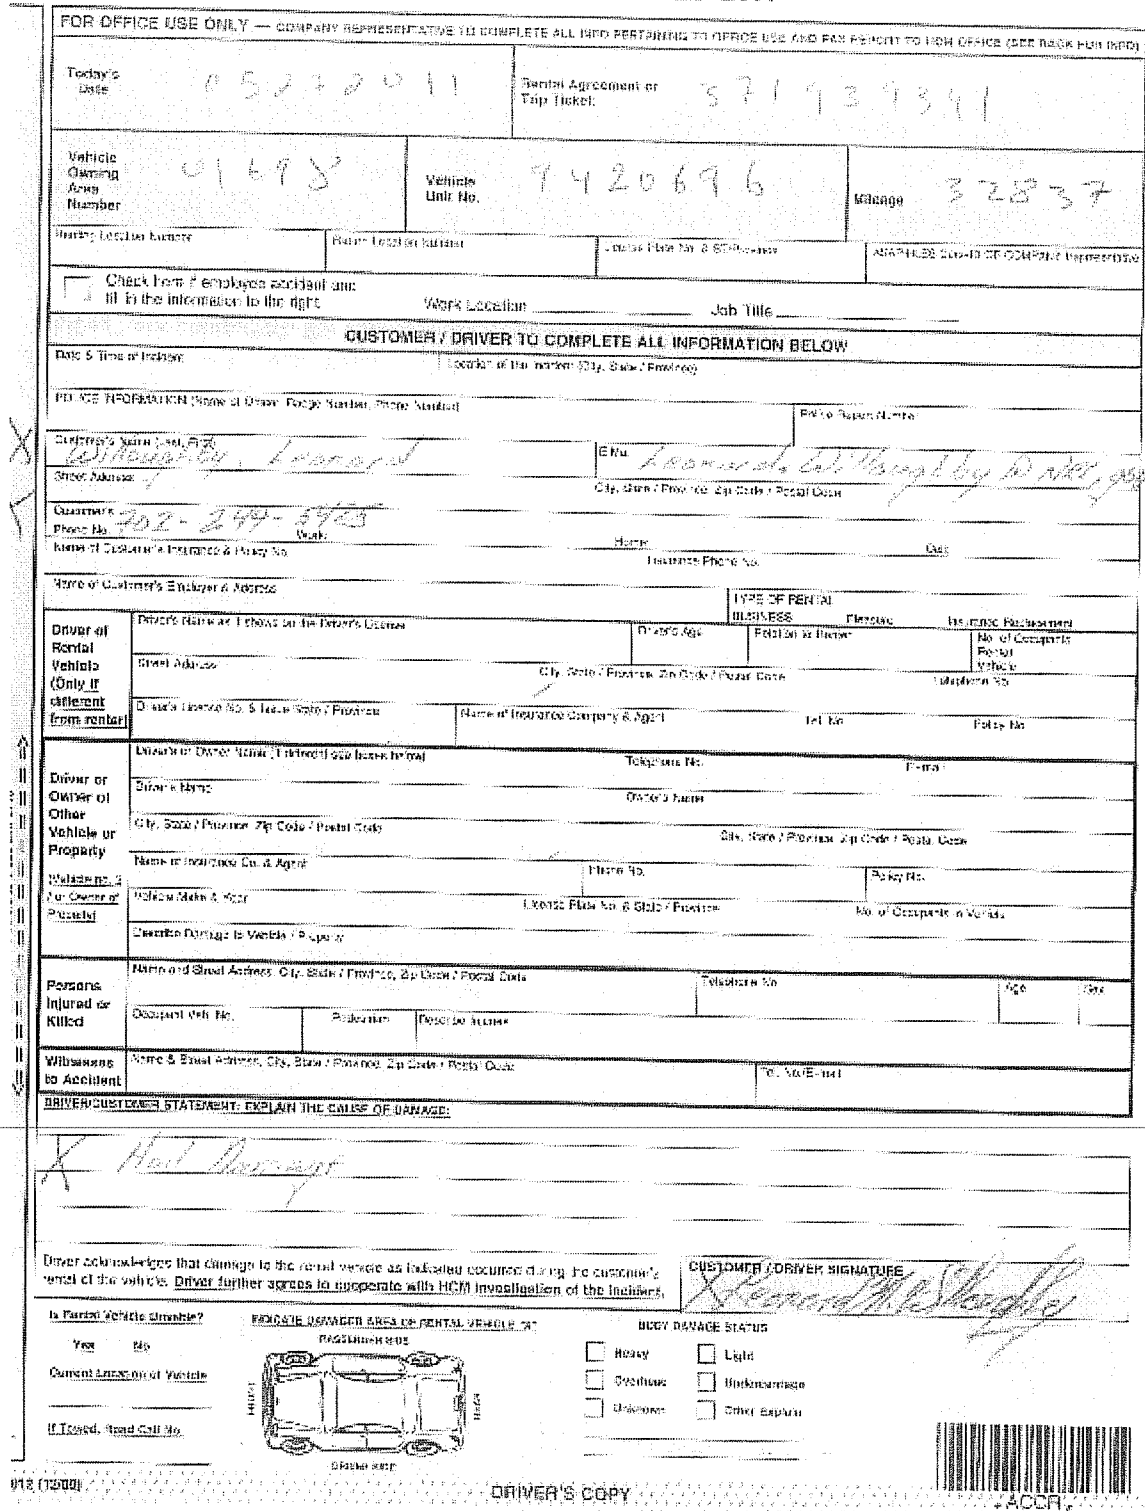 FOR OFFICE USE ONLY — COMPANY REPRESENTATIVE TO COMPLETE ALL INFO PERTAINING TO OFFICE USE AND FAX REPORT TO HCM OFFICE (SEE BACK FOR INFO)
Today's Date 05272011 Rental Agreement or Trip Ticket: 371939341
Vehicle Owning Area Number 01698 Vehicle Unit No. 9420696 Mileage 32837
Renting Location Number
License Plate No. & St/Province
COMPANY Representative
Check here if employee accident and
fill in the information to the right Work Location Job Title
CUSTOMER / DRIVER TO COMPLETE ALL INFORMATION BELOW
Date & Time of Incident Location of the Incident (City, State / Province)
POLICE INFORMATION (Name of Officer, Badge Number, Phone Number) Police Report Number
Customer's Name (Last, First) Willoughby, Leonard E-Mail
Street Address City, State / Province, Zip Code / Postal Code
Customer's Phone No. 702-249-5925 Work: Home: Cell:
Name of Customer's Insurance & Policy No. Insurance Phone No.
Name of Customer's Employer & Address TYPE OF RENTAL
BUSINESS Pleasure Insurance Replacement
Driver of Rental Vehicle (Only if different from renter)
Driver's Name as it shows on the Driver's License Driver's Age Relation to Renter No. of Occupants Rental Vehicle
Street Address City, State / Province, Zip Code / Postal Code Telephone No.
Driver's License No. & Issue State / Province Name of Insurance Company & Agent Tel. No. Policy No.
Driver or Owner of Other Vehicle or Property
(Vehicle no. 2 / or Owner of Property)
Driver's or Owner Name (if different use boxes below) Telephone No. E-mail
Driver's Name Owner's Name
City, State / Province, Zip Code / Postal Code City, State / Province, Zip Code / Postal Code
Name of Insurance Co. & Agent Phone No. Policy No.
Vehicle Make & Year License Plate No. & State / Province No. of Occupants in Vehicle
Describe Damage to Vehicle / Property
Persons Injured or Killed
Name and Street Address, City, State / Province, Zip Code / Postal Code Telephone No. Age Sex
Occupant Veh. No. Pedestrian Describe Injuries
Witnesses to Accident
Name & Street Address, City, State / Province, Zip Code / Postal Code Tel. No/E-mail
DRIVER/CUSTOMER STATEMENT: EXPLAIN THE CAUSE OF DAMAGE:
X Hail Damage
Driver acknowledges that damage to the rental vehicle as indicated occurred during the customer's
rental of the vehicle. Driver further agrees to cooperate with HCM investigation of the incident.
CUSTOMER / DRIVER SIGNATURE
Is Rental Vehicle Drivable? INDICATE DAMAGED AREA OF RENTAL VEHICLE BODY DAMAGE STATUS
Yes No PASSENGER SIDE
Heavy Light
Current Location of Vehicle FRONT REAR
Overhaus Undercarriage
Unknown Other Explain
If Towed, Road Call No.
DRIVER SIDE
012 (12/00) DRIVER'S COPY
*ACCR*